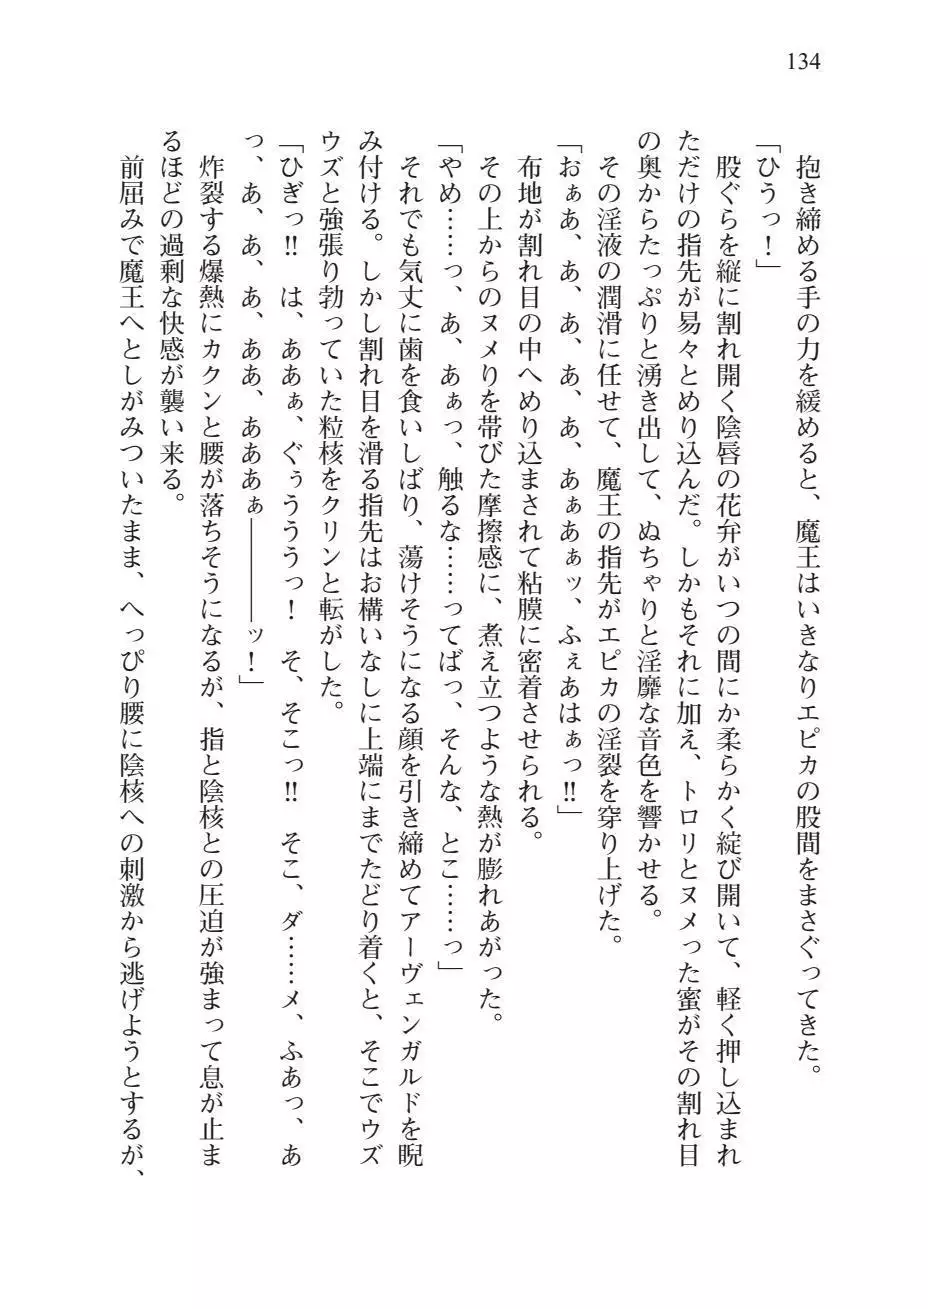 134
抱き締める手の力を緩めると、魔王はいきなりエピカの股間をまさぐってきた。
「ひうっ！」
股ぐらを縦に割れ開く陰唇の花弁がいつの間にか柔らかく綻び開いて、軽く押し込まれ
ただけの指先が易々とめり込んだ。しかもそれに加え、トロリとヌメった蜜がその割れ目
の奥からたっぷりと湧き出して、ぬちゃりと淫靡な音色を響かせる。
その淫液の潤滑に任せて、魔王の指先がエピカの淫裂を穿り上げた。
「おぁあ、あ、あ、あ、あ、あぁあぁッ、ふぇあはぁっ‼」
布地が割れ目の中へめり込まされて粘膜に密着させられる。
その上からのヌメりを帯びた摩擦感に、煮え立つような熱が膨れあがった。
「やめ……っ、あ、あぁっ、触るな……ってばっ、そんな、とこ……っ」
それでも気丈に歯を食いしばり、蕩けそうになる顔を引き締めてアーヴェンガルドを睨
み付ける。しかし割れ目を滑る指先はお構いなしに上端にまでたどり着くと、そこでウズ
ウズと強張り勃っていた粒核をクリンと転がした。
「ひぎっ‼　は、ああぁ、ぐぅううっ！　そ、そこっ‼　そこ、ダ……メ、ふあっ、あ
っ、あ、あ、あ、ああ、あああぁ――――ッ！」
炸裂する爆熱にカクンと腰が落ちそうになるが、指と陰核との圧迫が強まって息が止ま
るほどの過剰な快感が襲い来る。
前屈みで魔王へとしがみついたまま、へっぴり腰に陰核への刺激から逃げようとするが、